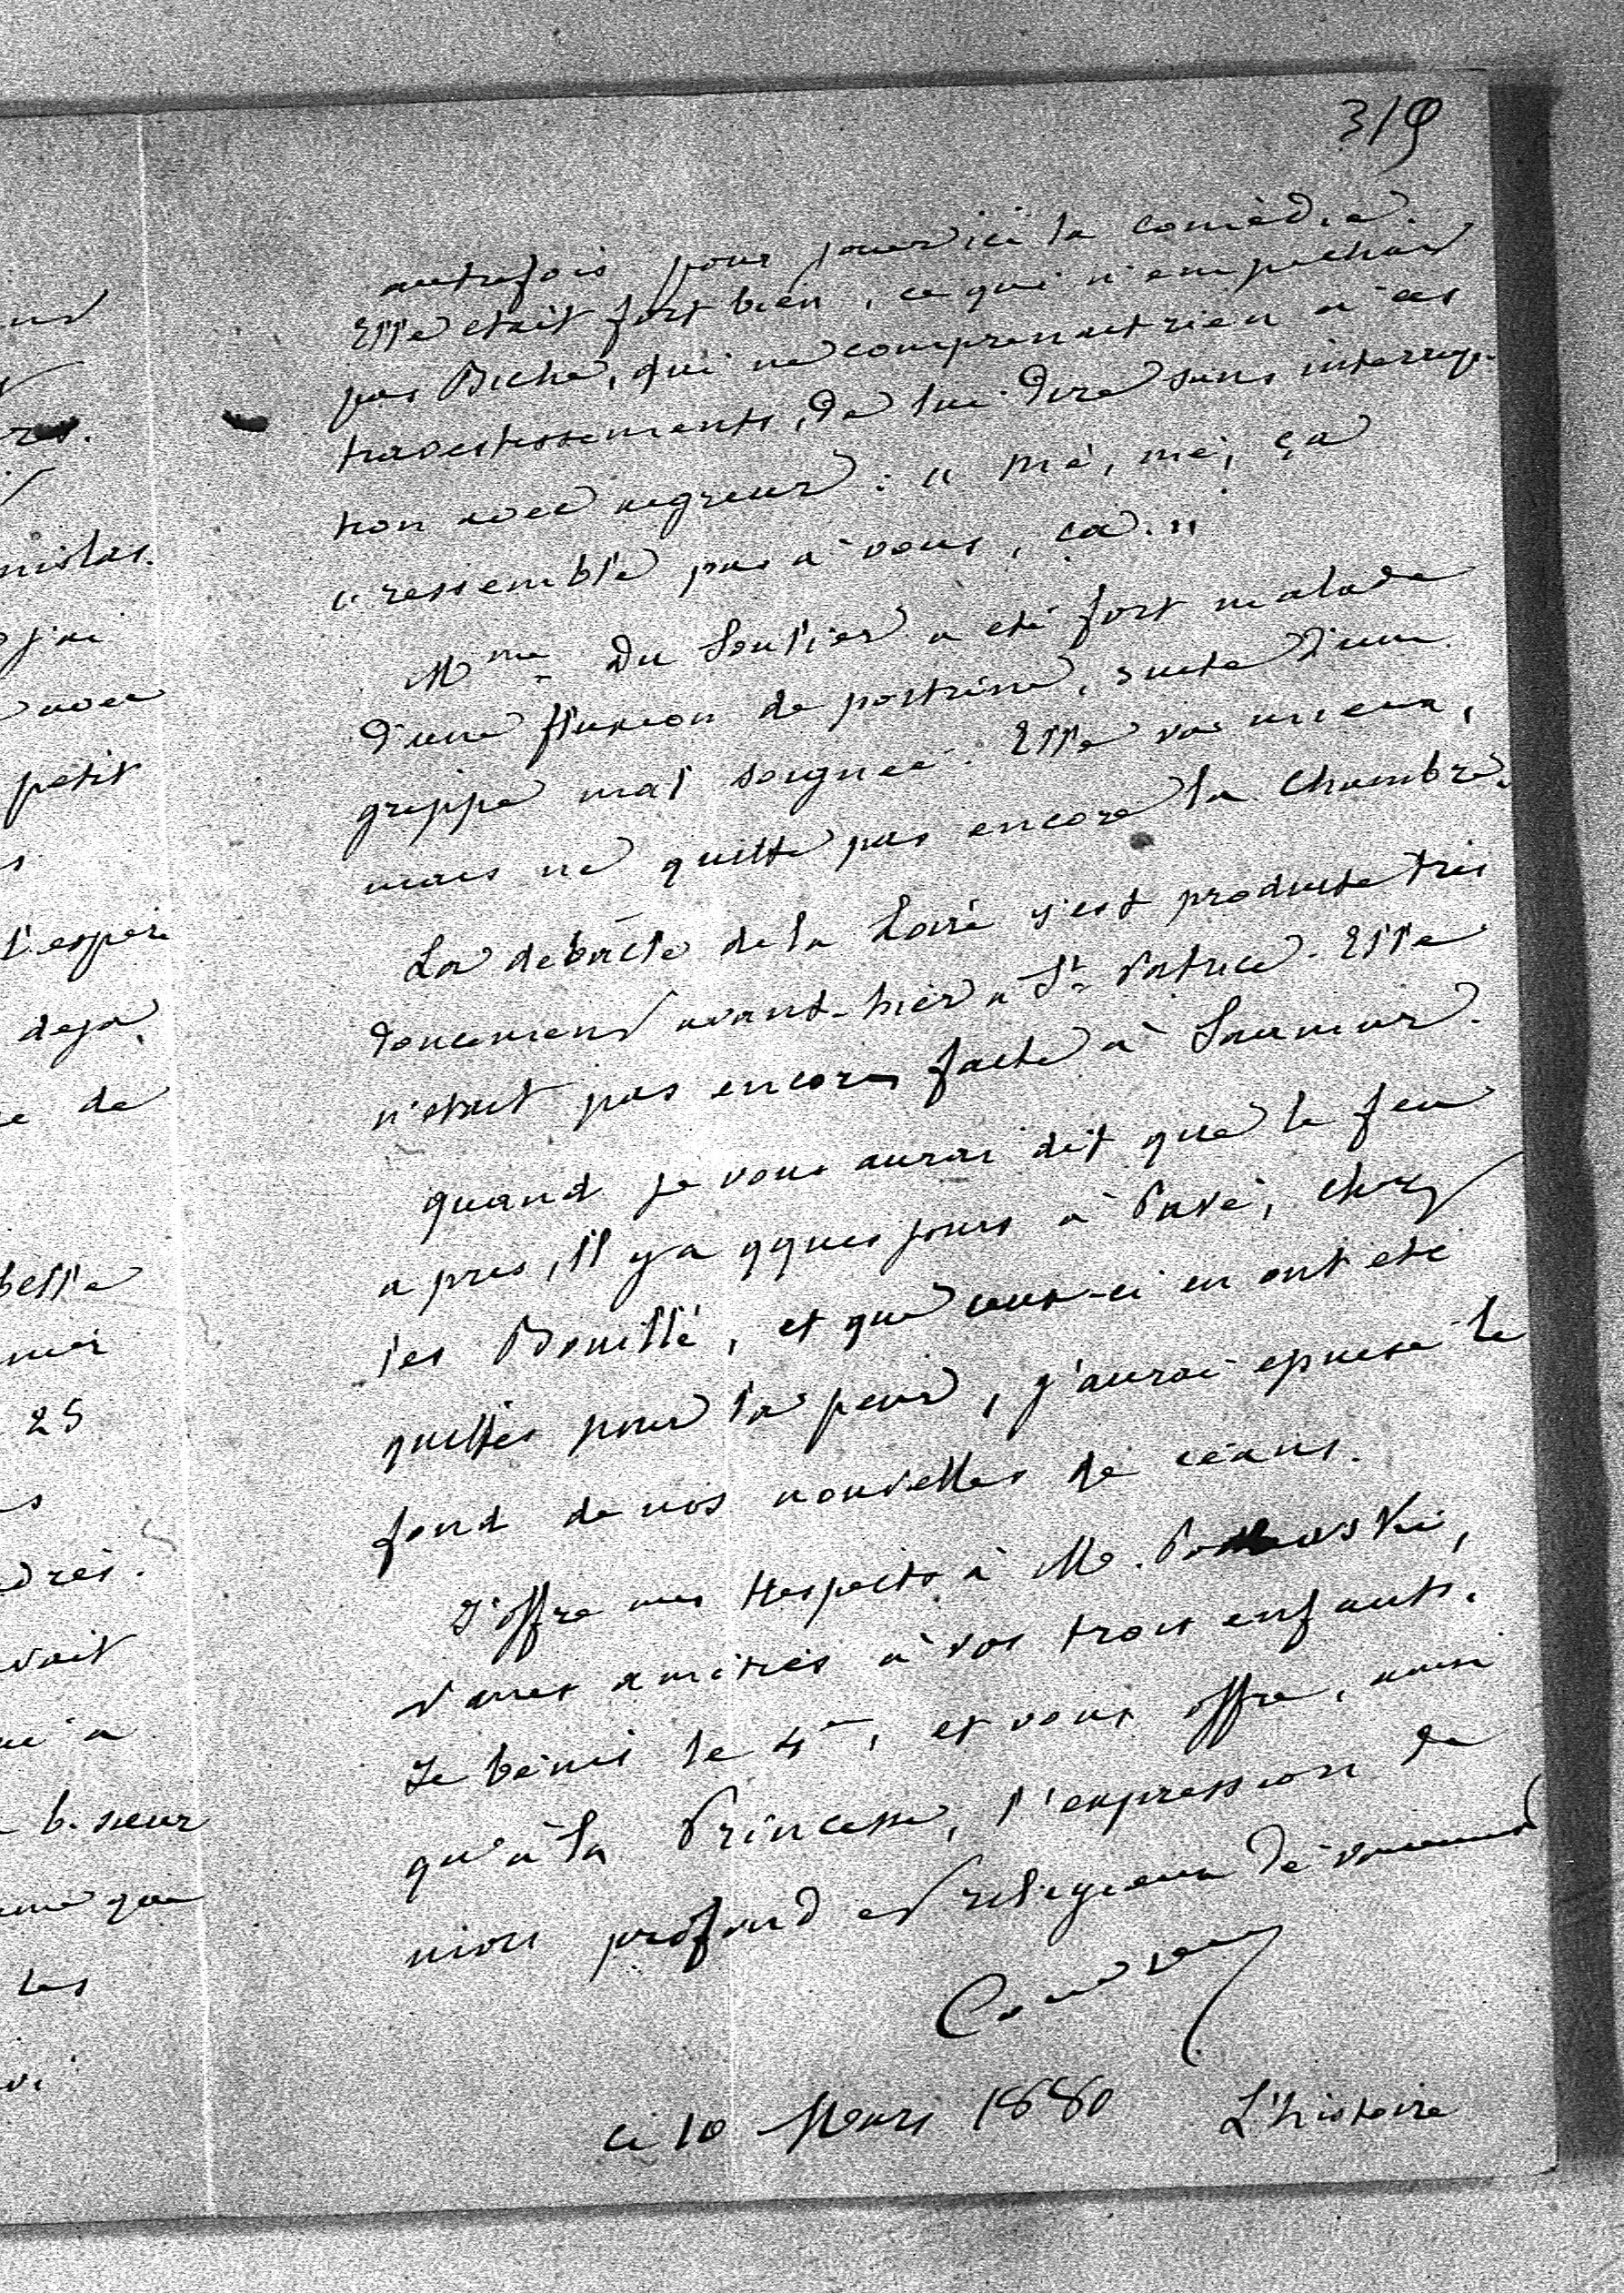 319
autrefois pour jouer ici la comédie.
Elle etait fort bien, ce qui n'empechait
pas Biche, qui ne comprenait rien à ces
travestissements, de lui dire sans interrup-
tion avec aigreur : " Mé, mé, ça
" ressemble pas à vous, ça. "
Mme Du Soulier a été fort malade
d'une fluxion de poitrine, suite d'une
grippe mal soignée. Elle va mieux,
mais ne quitte pas encore la chambre.
La debâcle de la Loire s'est produite très
doucement avant-hier à St Patrice. Elle
n'etait pas encore faite à Saumur.
quand je vous aurai dit que le feu
a pris, il y a qques jours à Pavé, chez
les Bouillé, et que ceux-ci en ont été
quittes pour la peur, j'aurai epuisé le
fond de nos nouvelles de céans.
J'offre mes respects à M.
amitiés à vos trois enfants.
Je bénis le 4me, et vous offre, ainsi
qu'à la Princesse, l'expression de
mon profond et religieux dévouement
ce 10 Mars 1880 L'histoire
ans
res.
nislas.
j'ai
avec
petit
l'espère
deja
de
belle
25
drés.
vait
à
b. sœur
que
les